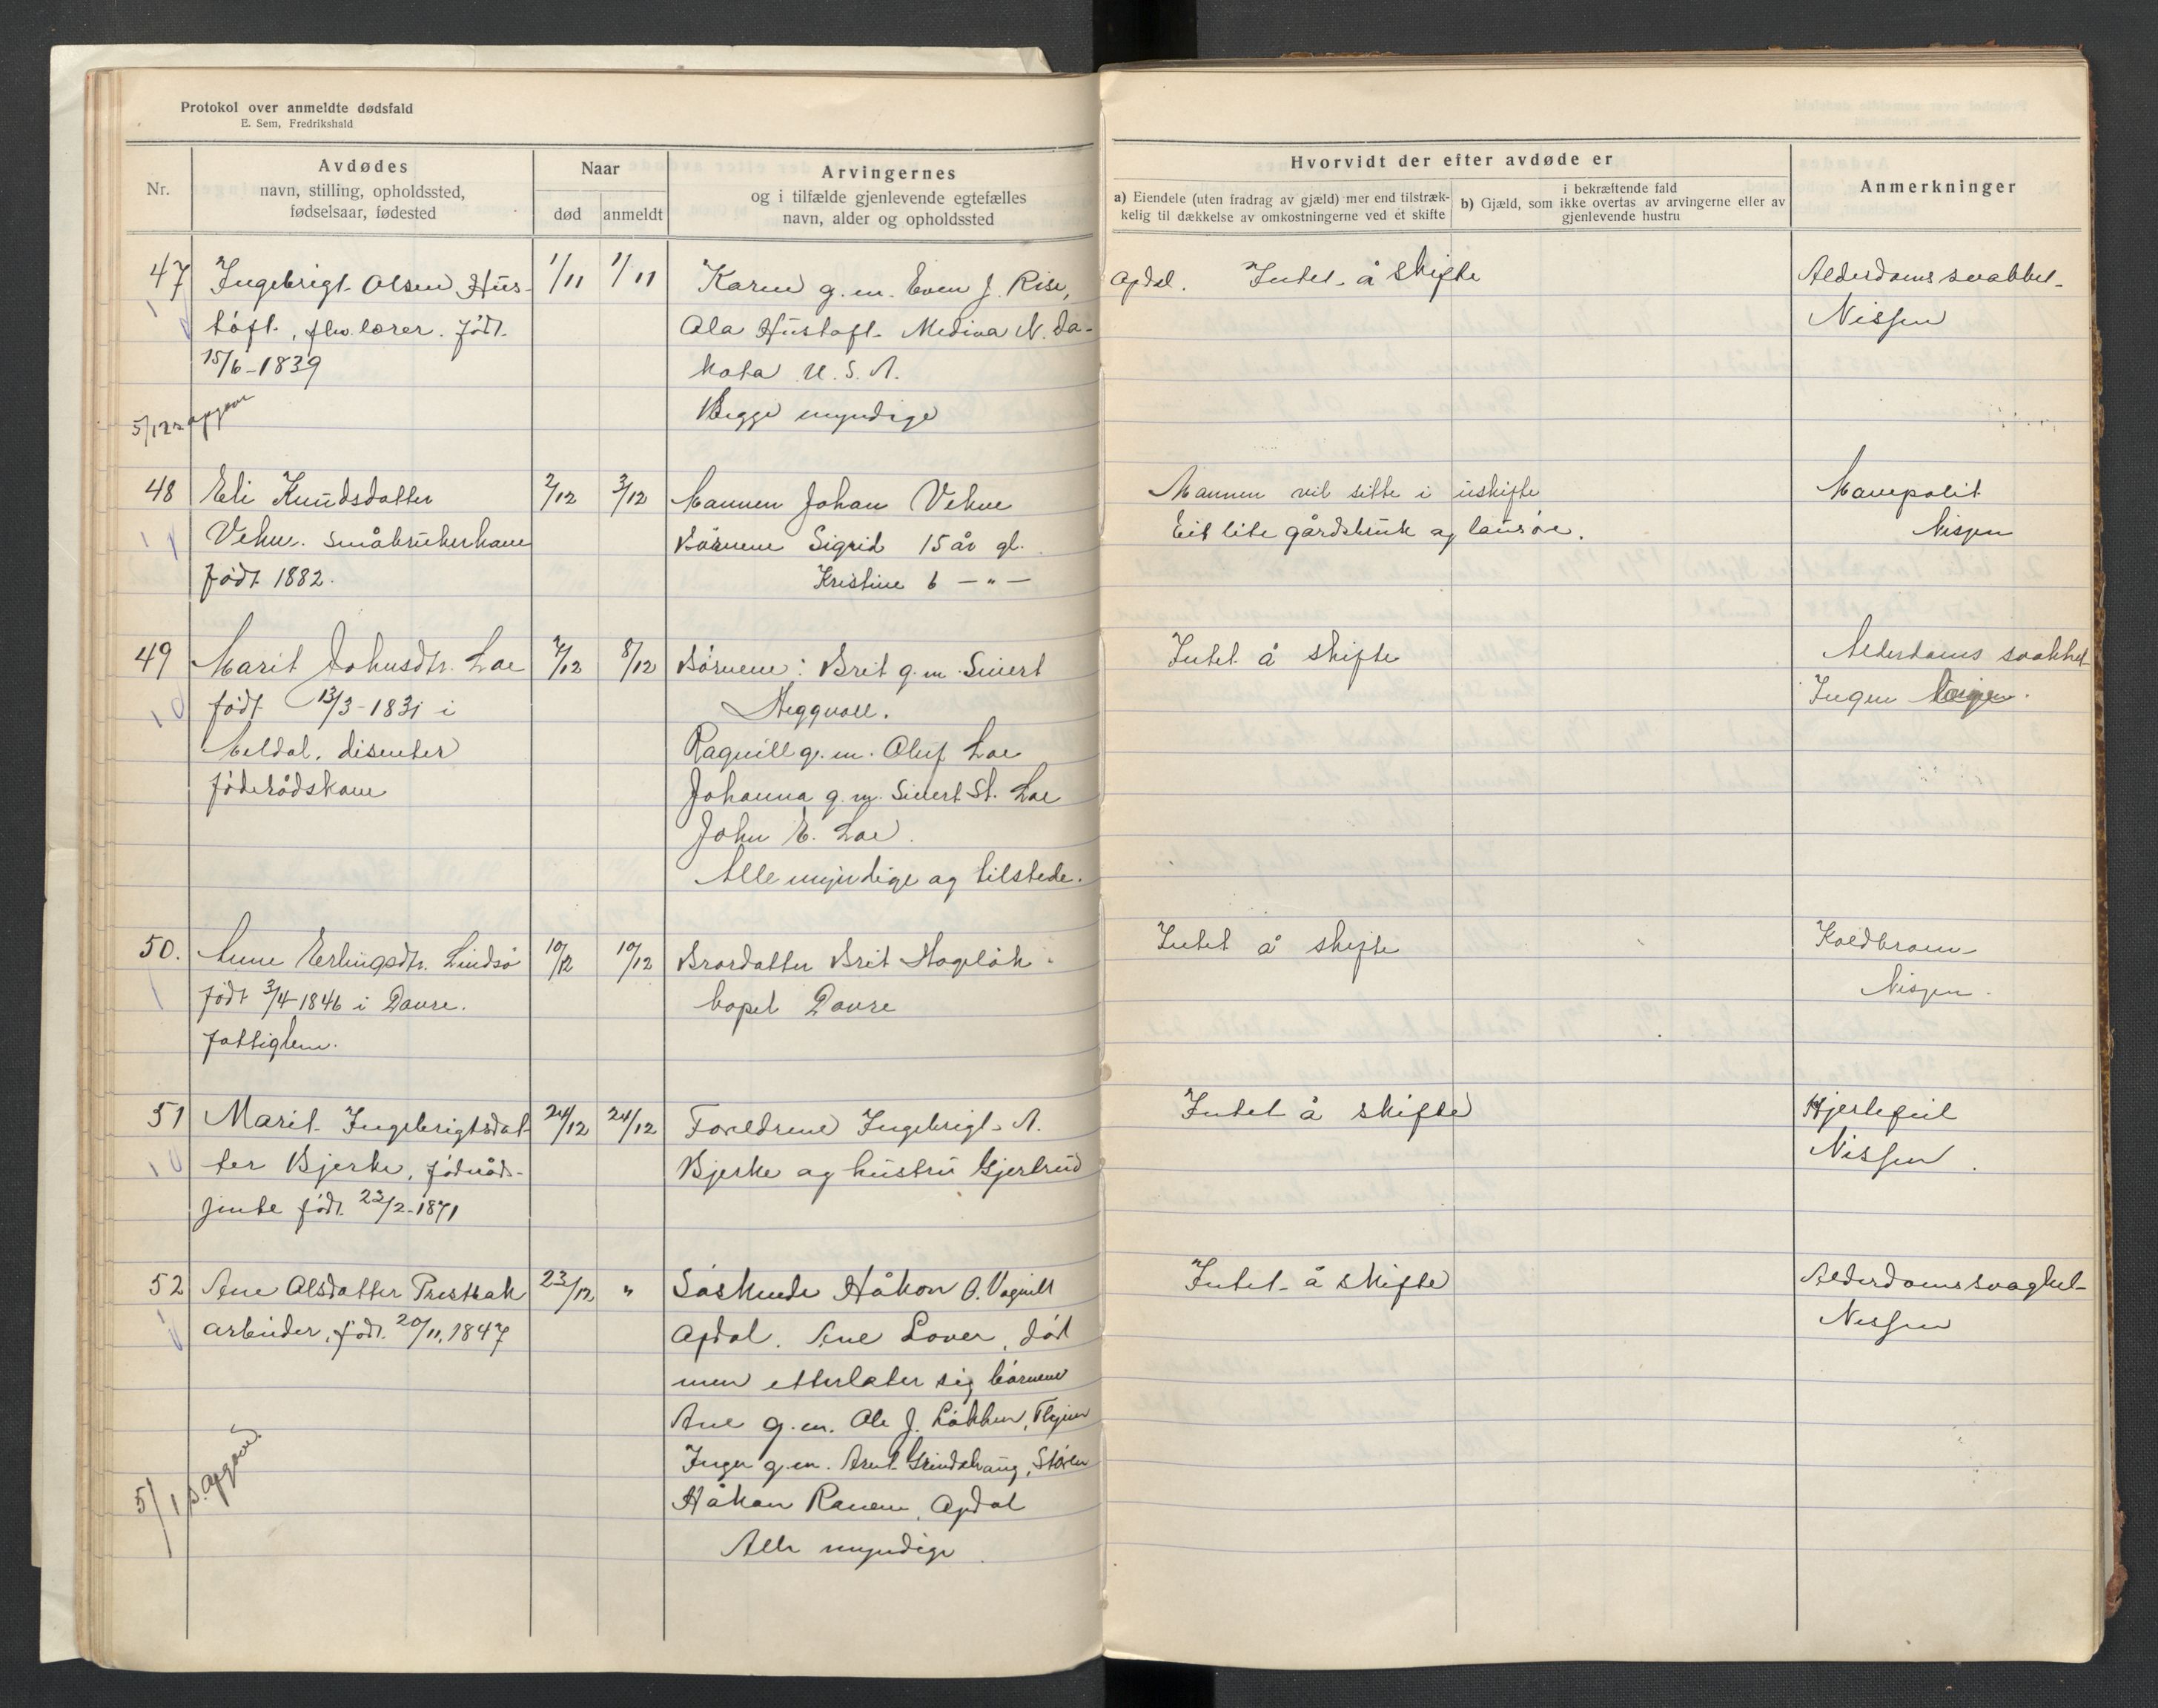 Protokol over anmeldte dødsfald
E. Sem, Fredrikshald
Nr.
Avdødes
navn, stilling, opholdssted,
fødselsaar, fødested
Naar
død
anmeldt
Arvingernes
og i tilfælde gjenlevende egtefælles
navn, alder og opholdssted
Hvorvidt der efter avdøde er
a) Eiendele (uten fradrag av gjæld) mer end tilstræk-
kelig til dækkelse av omkostningerne ved et skifte
i bekræftende fald
b) Gjæld, som ikke overtas av arvingerne eller av
gjenlevende hustru
Anmerkninger
47
Ingebrigt Olsen Hus-
toft, flv. lærer. født
15/6-1839
1/11
1/11
Karen g.m. Even J. Rise,
Ola Hustoft Medina N. Da-
kota U.S.A.
Begge myndige
Opdal. Intet å skifte
Alderdomssvakhet
Nissen
5/12 s. opgave
48
Eli Knudsdatter
Vehue småbrukerkone
født 1882.
2/12
3/12
Mannen Johan Vehue
Børnene Sigrid 15 år gl.
Kristine 6 — " —
Mannen vil sitte i uskifte
Eit lite gårdsbruk og lausøe.
Nissen
49
Marit Johnsdtr. Loe
født 13/3-1831 i
Meldal. disenter
føderådskone
7/12
8/12
Børnene: Brit g.m. Sivert
Heggvoll.
Ragnill g.m. Oluf Loe
Johanna g.m. Sivert St. Loe
John E. Loe.
Alle myndige og tilstede.
Intet å skifte
Alderdoms svakhet
Ingen
50.
Anne Erlingsdtr. Lindsø
født 3/4-1846 i Dovre.
fattiglem.
10/12
10/12
Brordatter Brit Hageløk
bopel Dovre
Intet å skifte
Koldbrann
Nissen.
51
Marit Ingebrigtsdat-
ter Bjerke, føderåds-
jente født 22/2-1871
24/12
24/12
Foreldrene Ingebrigt A.
Bjerke og hustru Gjertrud
Intet å skifte
Hjertefeil
Nissen.
52
Ane Olsdatter Prestbak
arbeider, født 20/11.1847
23/12
"
Søskende Håkon O. Vognill
Opdal. Ane Lover, død
men etterlater sig børnene
Ane g.m. Ole J. Løkken,
Inger g.m. Arnt Grindshaug, Støren
Håkon Ranem, Opdal
Alle myndige
Intet å skifte
Alderdomssvaghet
Nissen
5/1 s. opgave